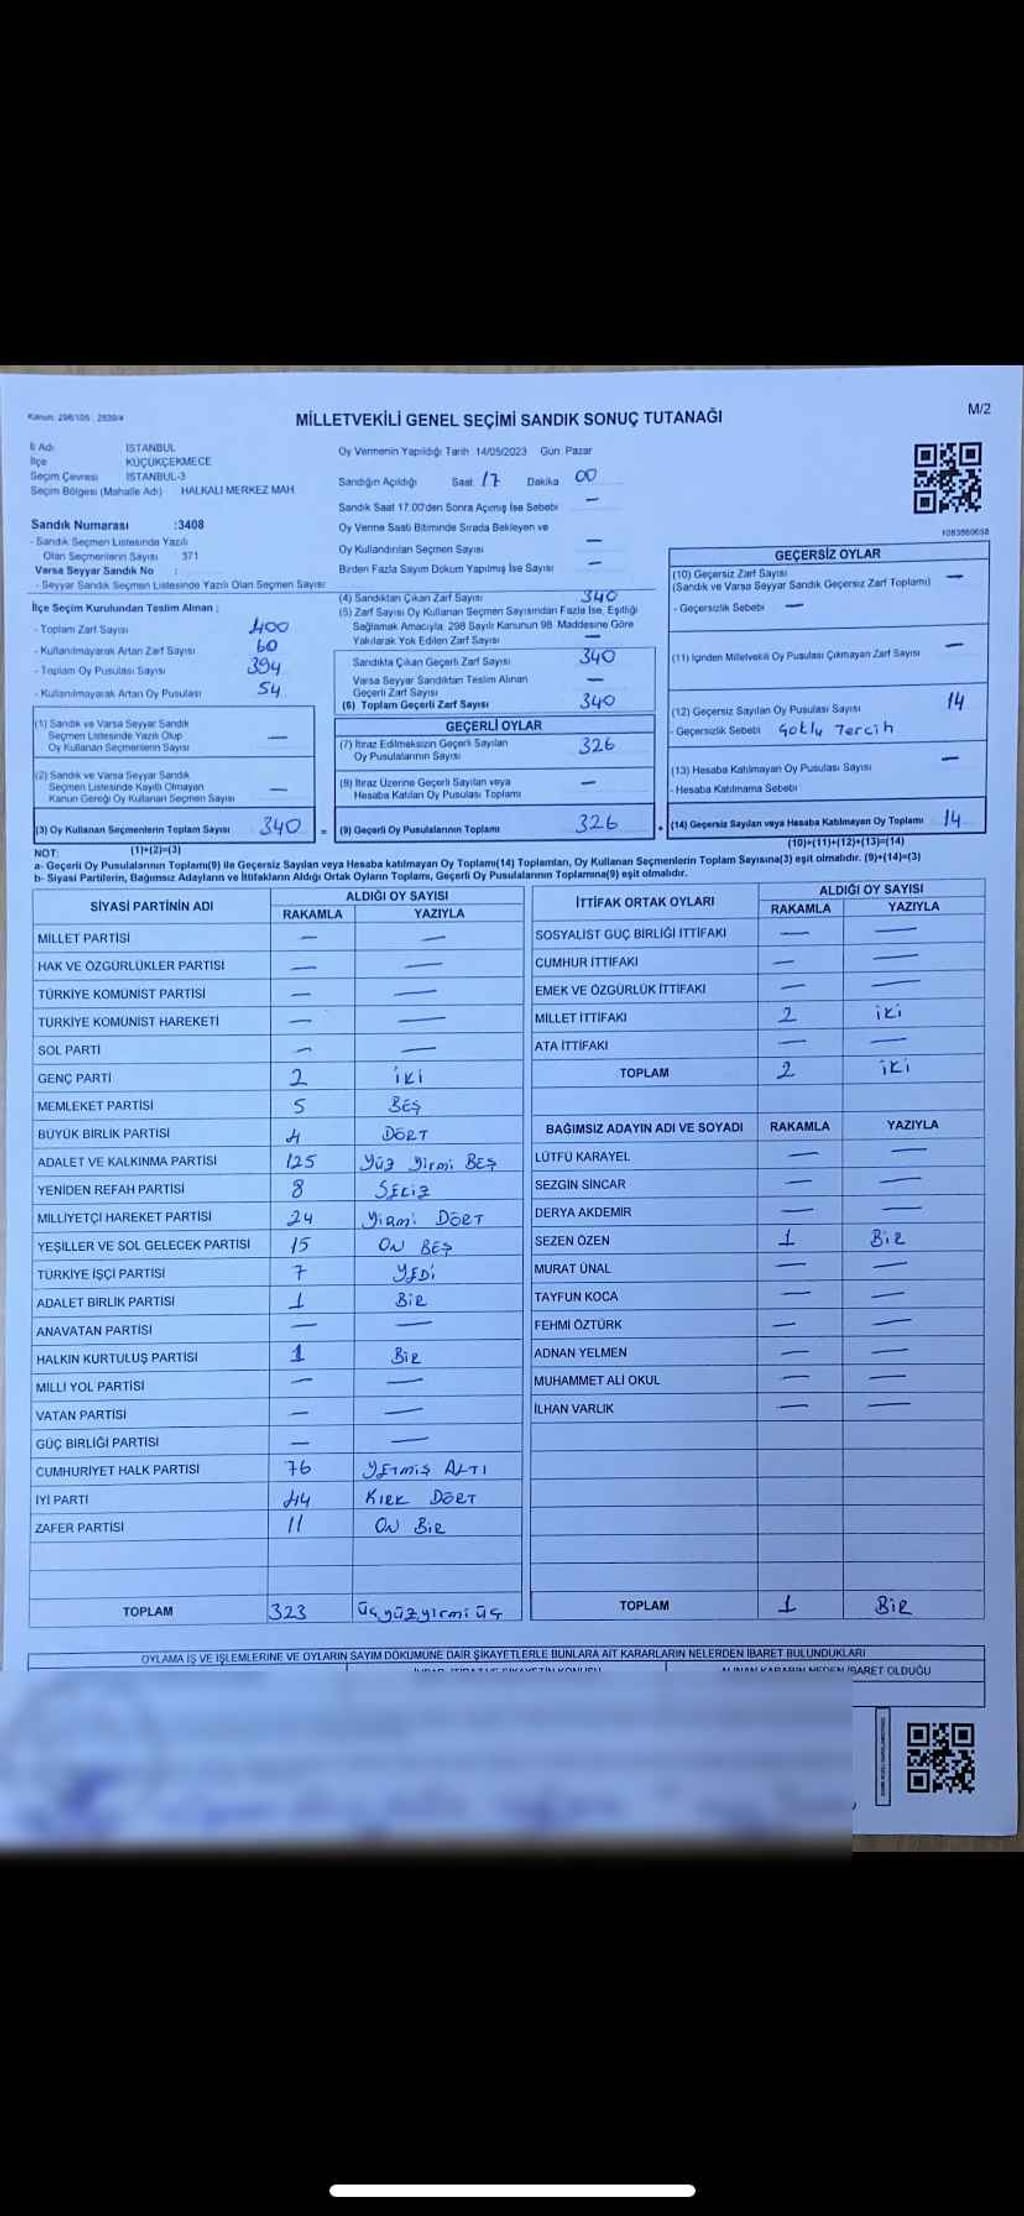 Kanun: 298/105 ; 2839/4
M/2
MİLLETVEKİLİ GENEL SEÇİMİ SANDIK SONUÇ TUTANAĞI
İl Adı İSTANBUL
İlçe KÜÇÜKÇEKMECE
Seçim Çevresi İSTANBUL-3
Seçim Bölgesi (Mahalle Adı) HALKALI MERKEZ MAH.
Sandık Numarası :3408
- Sandık Seçmen Listesinde Yazılı
Olan Seçmenlerin Sayısı 371
Varsa Seyyar Sandık No :
- Seyyar Sandık Seçmen Listesinde Yazılı Olan Seçmen Sayısı:
İlçe Seçim Kurulundan Teslim Alınan ;
- Toplam Zarf Sayısı 400
- Kullanılmayarak Artan Zarf Sayısı 60
- Toplam Oy Pusulası Sayısı 394
- Kullanılmayarak Artan Oy Pusulası 54
(1) Sandık ve Varsa Seyyar Sandık
Seçmen Listesinde Yazılı Olup
Oy Kullanan Seçmenlerin Sayısı —
(2) Sandık ve Varsa Seyyar Sandık
Seçmen Listesinde Kayıtlı Olmayan
Kanun Gereği Oy Kullanan Seçmen Sayısı —
(3) Oy Kullanan Seçmenlerin Toplam Sayısı 340 =
Oy Vermenin Yapıldığı Tarih 14/05/2023 Gün: Pazar
Sandığın Açıldığı Saat 17 Dakika 00
Sandık Saat 17:00'den Sonra Açımış İse Sebebi —
Oy Verme Saati Bitiminde Sırada Bekleyen ve
Oy Kullandırılan Seçmen Sayısı —
Birden Fazla Sayım Döküm Yapılmış İse Sayısı —
(4) Sandıktan Çıkan Zarf Sayısı 340
(5) Zarf Sayısı Oy Kullanan Seçmen Sayısından Fazla İse, Eşitliği
Sağlamak Amacıyla, 298 Sayılı Kanunun 98. Maddesine Göre
Yakılarak Yok Edilen Zarf Sayısı —
Sandıkta Çıkan Geçerli Zarf Sayısı 340
Varsa Seyyar Sandıktan Teslim Alınan
Geçerli Zarf Sayısı —
(6) Toplam Geçerli Zarf Sayısı 340
GEÇERLİ OYLAR
(7) İtiraz Edilmeksizin Geçerli Sayılan
Oy Pusulalarının Sayısı 326
(8) İtiraz Üzerine Geçerli Sayılan veya
Hesaba Katılan Oy Pusulası Toplamı —
(9) Geçerli Oy Pusulalarının Toplamı 326 +
1083860658
GEÇERSİZ OYLAR
(10) Geçersiz Zarf Sayısı —
(Sandık ve Varsa Seyyar Sandık Geçersiz Zarf Toplamı)
- Geçersizlik Sebebi —
(11) İçinden Milletvekili Oy Pusulası Çıkmayan Zarf Sayısı —
(12) Geçersiz Sayılan Oy Pusulası Sayısı 14
- Geçersizlik Sebebi Çoklu Tercih
(13) Hesaba Katılmayan Oy Pusulası Sayısı —
- Hesaba Katılmama Sebebi
(14) Geçersiz Sayılan veya Hesaba Katılmayan Oy Toplamı 14
NOT: (1)+(2)=(3) (10)+(11)+(12)+(13)=(14)
a- Geçerli Oy Pusulalarının Toplamı(9) ile Geçersiz Sayılan veya Hesaba katılmayan Oy Toplamı(14) Toplamları, Oy Kullanan Seçmenlerin Toplam Sayısına(3) eşit olmalıdır. (9)+(14)=(3)
b- Siyasi Partilerin, Bağımsız Adayların ve İttifakların Aldığı Ortak Oyların Toplamı, Geçerli Oy Pusulalarının Toplamına(9) eşit olmalıdır.
SİYASİ PARTİNİN ADI ALDIĞI OY SAYISI
RAKAMLA YAZIYLA
MİLLET PARTİSİ — —
HAK VE ÖZGÜRLÜKLER PARTİSİ — —
TÜRKİYE KOMÜNİST PARTİSİ — —
TÜRKİYE KOMÜNİST HAREKETİ — —
SOL PARTİ — —
GENÇ PARTİ 2 İKİ
MEMLEKET PARTİSİ 5 BEŞ
BÜYÜK BİRLİK PARTİSİ 4 DÖRT
ADALET VE KALKINMA PARTİSİ 125 Yüz Yirmi BEŞ
YENİDEN REFAH PARTİSİ 8 SEKİZ
MİLLİYETÇİ HAREKET PARTİSİ 24 Yirmi DÖRT
YEŞİLLER VE SOL GELECEK PARTİSİ 15 ON BEŞ
TÜRKİYE İŞÇİ PARTİSİ 7 YEDİ
ADALET BİRLİK PARTİSİ 1 BİR
ANAVATAN PARTİSİ — —
HALKIN KURTULUŞ PARTİSİ 1 BİR
MİLLİ YOL PARTİSİ — —
VATAN PARTİSİ — —
GÜÇ BİRLİĞİ PARTİSİ — —
CUMHURİYET HALK PARTİSİ 76 YETMİŞ ALTI
İYİ PARTİ 44 KIRK DÖRT
ZAFER PARTİSİ 11 ON BİR
TOPLAM 323 üçyüzyirmi üç
İTTİFAK ORTAK OYLARI ALDIĞI OY SAYISI
RAKAMLA YAZIYLA
SOSYALİST GÜÇ BİRLİĞİ İTTİFAKI — —
CUMHUR İTTİFAKI — —
EMEK VE ÖZGÜRLÜK İTTİFAKI — —
MİLLET İTTİFAKI 2 İKİ
ATA İTTİFAKI — —
TOPLAM 2 İKİ
BAĞIMSIZ ADAYIN ADI VE SOYADI RAKAMLA YAZIYLA
LÜTFÜ KARAYEL — —
SEZGİN SİNCAR — —
DERYA AKDEMİR — —
SEZEN ÖZEN 1 BİR
MURAT ÜNAL — —
TAYFUN KOCA — —
FEHMİ ÖZTÜRK — —
ADNAN YELMEN — —
MUHAMMET ALİ OKUL — —
İLHAN VARLIK — —
TOPLAM 1 BİR
OYLAMA İŞ VE İŞLEMLERİNE VE OYLARIN SAYIM DÖKÜMÜNE DAİR ŞİKAYETLERLE BUNLARA AİT KARARLARIN NELERDEN İBARET BULUNDUKLARI
ALINAN KARARIN NEDEN İBARET OLDUĞU